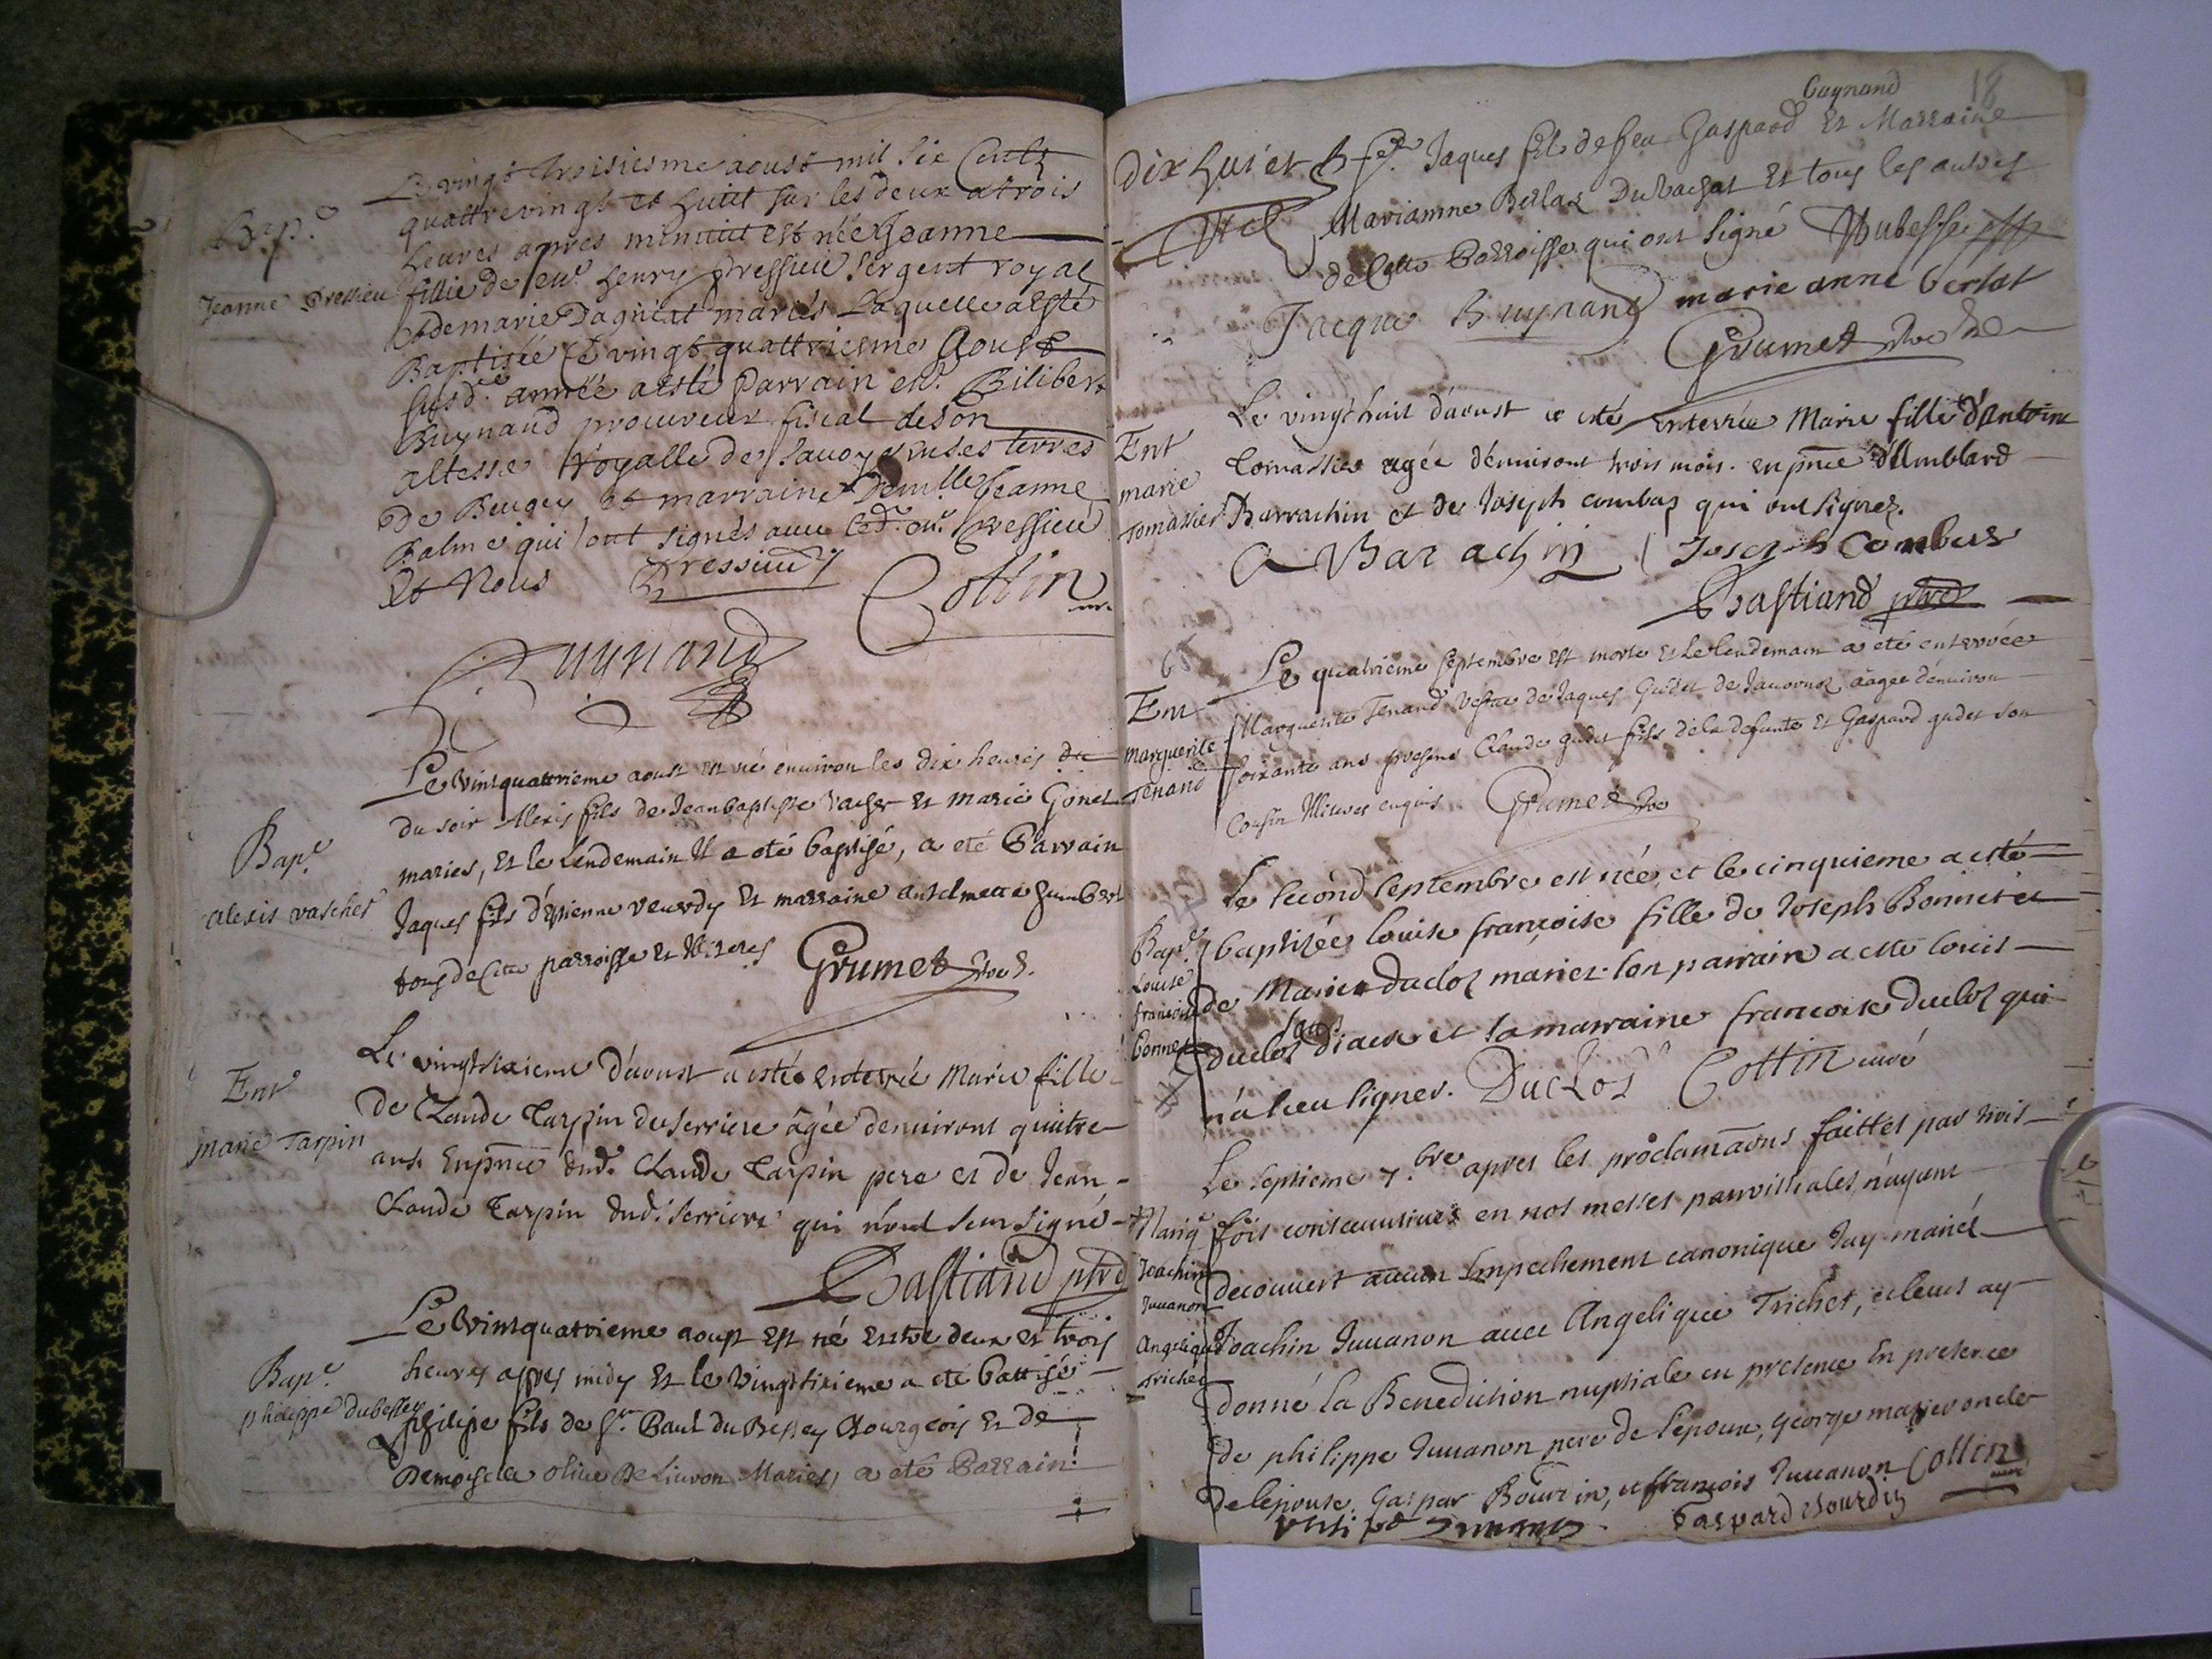 Bap.e
Jeanne Dressieu
Le vingt troisiesme aoust mil six Cents
quattrevingt et huitt sur les deux a trois
heures apres minuit est née Jeanne
fillie de Henry Dressieu sergent royal
et de marie Dagniat mariés Laquelle a esté
Baptisée le vingt quattriesme Aoust
susd.e année a esté Parrain
Buynaud procureur fiscal de son
altesse Royalle de Savoye en ses terres
de Beugey et marraine Jeanne
Balme qui ont signés avec Dressieu
Et Nous Dressieu
Cottin
Buynand
Bap.e
alexis vascher
Le vintquattrieme aoust est né environ les dix heures du
du soir Alexis fils de Jean baptiste Vacher et marie Gonet
maries, et le lendemain il a oté baptisé, a eté Parrain
Jaques fils d'Estienne et marraine antelmette humbert
tous de cette parroisse et
Grumet
Ent.
marie Tarpin
Le vingtsixieme d'aoust a esté enterrée Marie fille
de Claude Tarpin de Serriere âgée d'environt quattre
ans. En pnce dud. Claude Tarpin pere et de Jean
Claude Tarpin dud. Serriere qui n'ont signé
Bastiand ptre
Bap.e
philippe dubessey
Le Vintquatrieme aoust Est né Entre deux et trois
heures apres midy et le vingtsixieme a eté battisé
philipe fils de Sr. Paul du Bessey Bourgeois et de
Demoiselle olive De Livron Mariés, a eté Parrain
18
Buynand
Dix huict Jaques fils de feu Gaspard et Marraine
Marianne Berlat Du Vachat et tous les autres
de Cette Parroisse qui ont signé Dubessey
Jacque Buynand marie anne berlat
Grumet
Ent
marie
Tomassier
Le vingt huit d'aoust a esté enterrée Marie fille d'Antoine
Tomassier agée d'environt trois mois. en pnce d'Amblard
Barrachin et de Joseph combaz qui ont signez.
A Barachin Joseph Combas
Bastiand ptre
Ent
marguerite
Tenand
Le quatrieme septembre est morte et le lendemain a eté enterrée
Marguerite Tenand Vefve de Jaques Gudet de aagée d'environ
soixante ans presens Claude gudet fils de la defunte et Gaspard gudet son
Cousin enquis. Grumet
Bap.e
Louise
francoise
bonnet
Le second septembre est née, et le cinquieme a esté
baptisée louise françoise fille de Joseph Bonnet et
de Marie duclos mariez. son parrain a esté louis
duclos diacre et la marraine francoise duclos qui
n'a sceu signer. DucLos Cottin curé
Mariage
Joachin
Juuanon
Angelique
Trichet
Le septieme 7.bre apres les proclamaons faittes par trois
fois consecutives en nos messes parroissiales, n'ayant
decouvert aucun empechement canonique J'ay mariés
Joachin Juuanon avec Angelique Trichet, et leurs ay
donné la Benediction nuptiale en presence En presence
de philippe Juuanon pere de l'epoux, George oncle
de l'epouse. Gaspar Bourdin, et francois Juuanon Cottin
Gaspard Bourdin